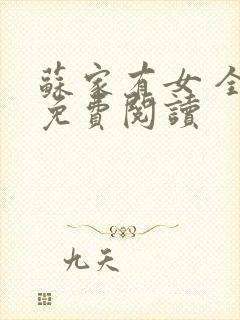 蘇家有女 全
免費閱讀
九天